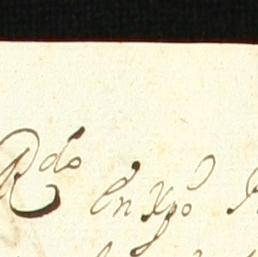 Rdo en Xpo P